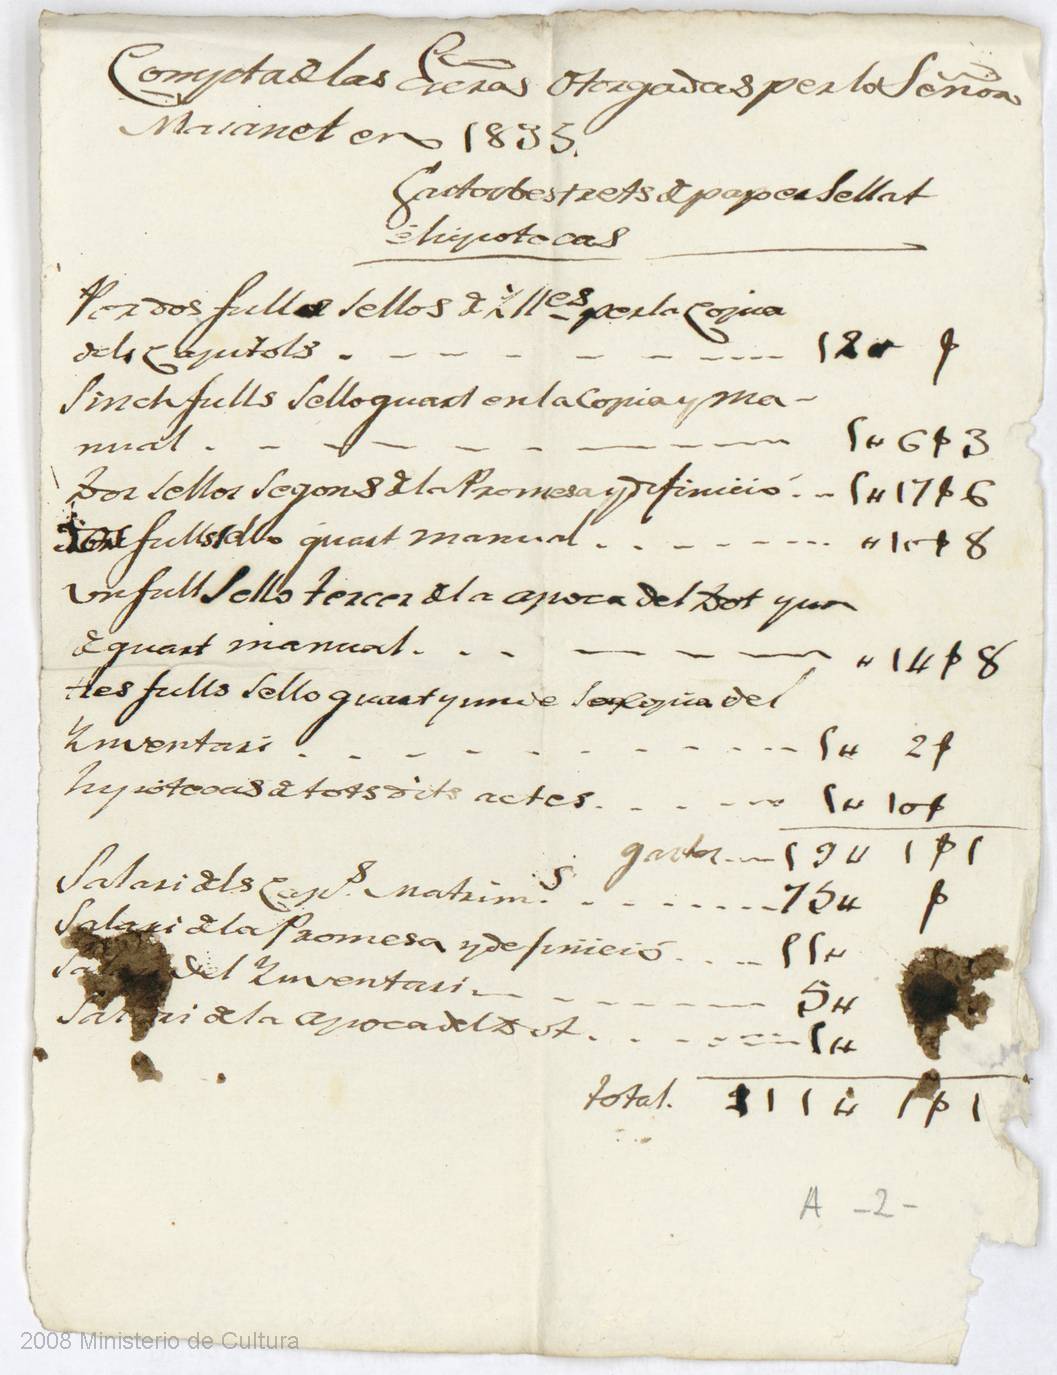 Compta de las Escras otorgadas per lo Señor
Maranet en 1835.
Gastos bestrets de paper Sellat
è hipotecas
Per dos fulls sellos de Illes per la Copia
dels Capitols . - - - - - - 12 ₶ ꝑ
Sinch fulls Sello quart en la Copia y Ma-
nual . - - - - - - ₶ 6 ꝑ 3
Dos sellos Segons de la Promesa y difinició . - ₶ 17 ꝑ 6
dos fulls sello quart manual . . - - - - ₶ 10 ꝑ 8
un full Sello tercer de la apoca del Dot y un
de quart manual . . . - - - ₶ 14 ꝑ 8
tres fulls sello quart y un de la Copia del
Inventari . . - - - - - - 1 ₶ 2 ꝑ
hypotecas de tots dits actes . . - - - 1 ₶ 10 ꝑ
gastos . . - 19 ₶ 1 ꝑ 1
Salari dels Caps. Matrims. . - - - - - 75 ₶ ꝑ
Salari de la Promesa y definició . . - - 11 ₶
Salari del Inventari . - - - - - 5 ₶
Salari de la apoca del Dot . . - - - - 1 ₶
total. 111 ₶ 1 ꝑ 1
A -2-
2008 Ministerio de Cultura